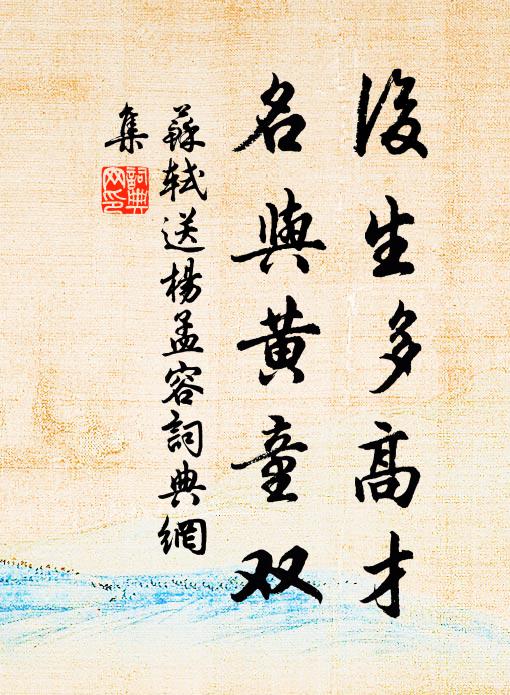 後生多高才
名與黄童双
蘇軾送楊孟容詞典網
集
詞典
网印